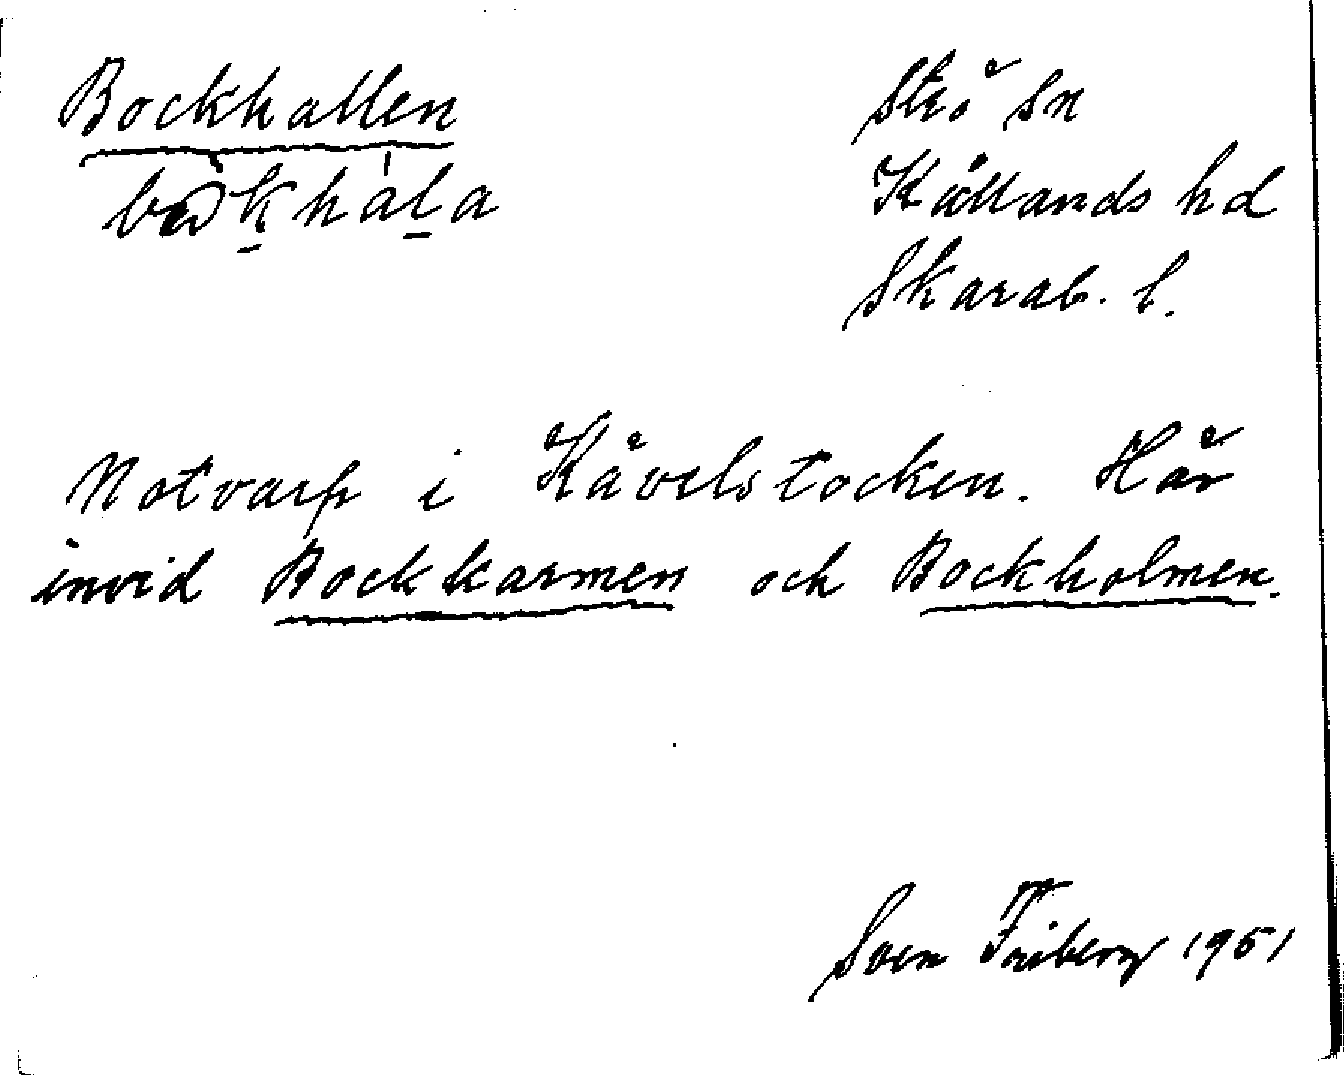 Bockhallen
Strö sn
Kållands hd
Skarab. l.
Notvarp i Kävelstocken. Här
invid Bockkarmen och Bockholmen.
Sven Friberg 1951